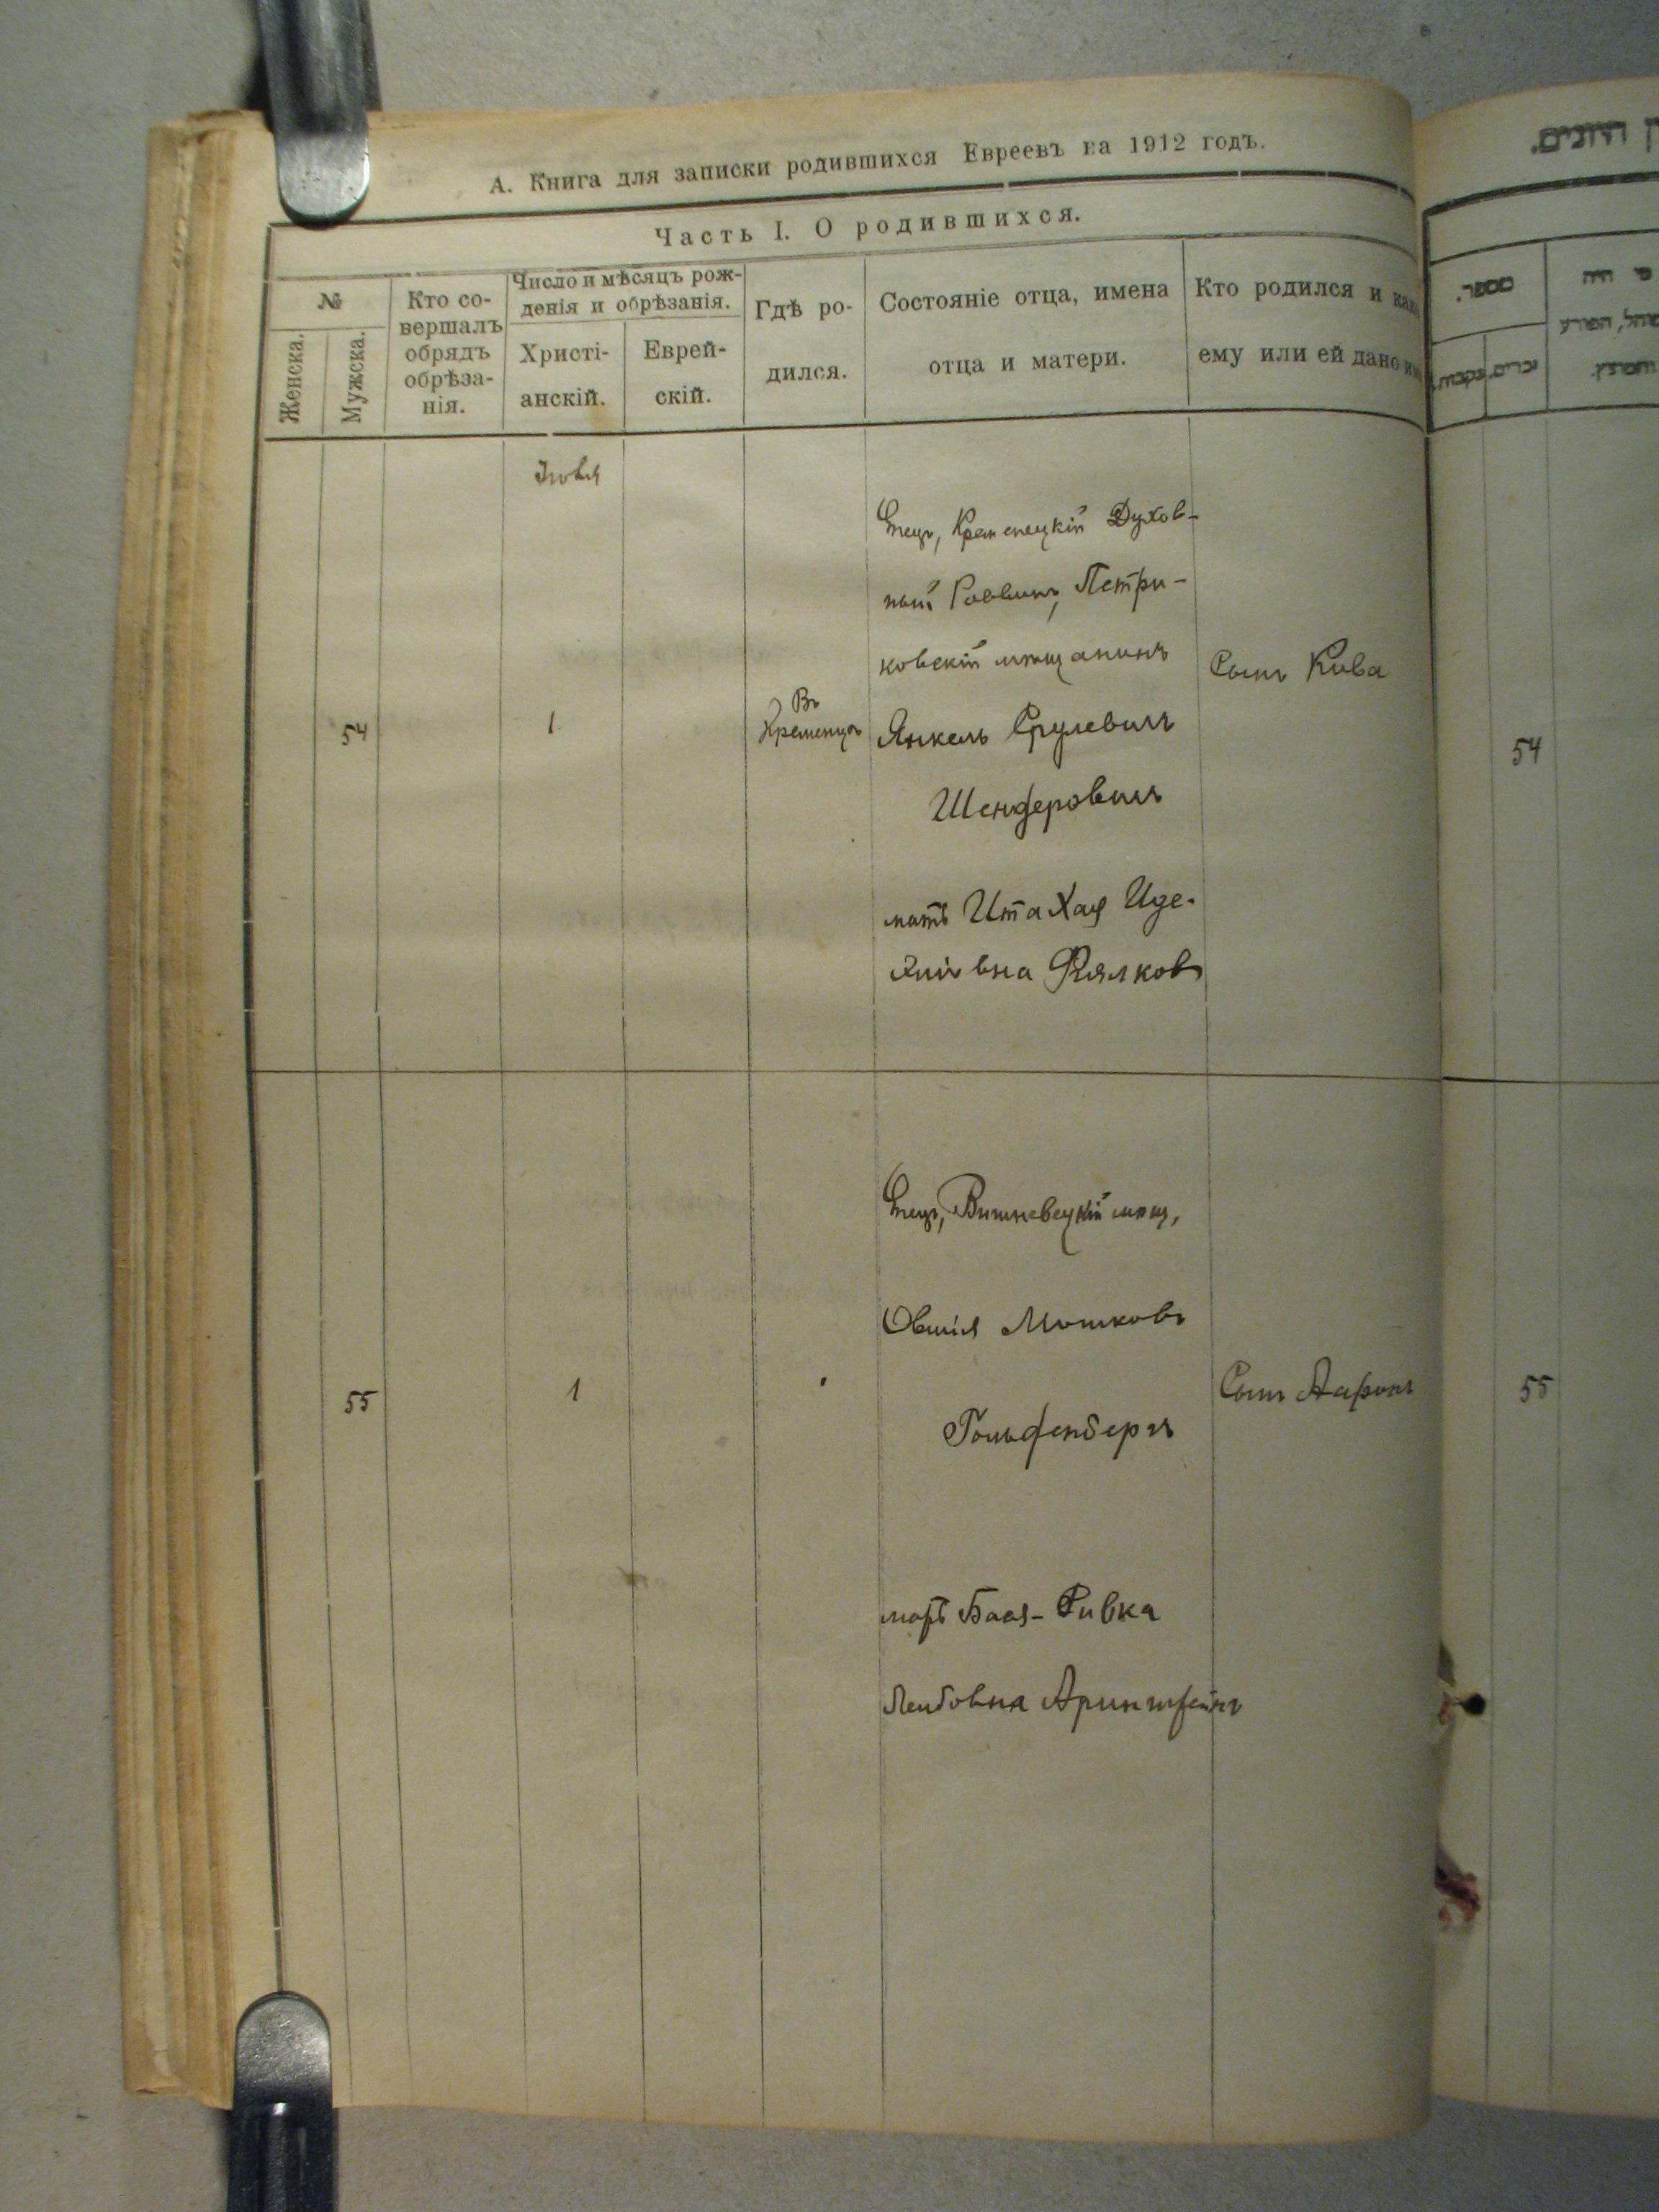 А. Книга для записки родившихся Евреевъ на 1912 годъ.
Часть I. О родившихся.
№
Женска.
Мужска.
Кто со-
вершалъ
обрядъ
обрѣза-
нія.
Число и мѣсяцъ рож-
денія и обрѣзанія.
Христі-
анскій.
Еврей-
скій.
Гдѣ ро-
дился.
Состояніе отца, имена
отца и матери.
Кто родился и как
ему или ей дано им
54
1
Въ
Кременцѣ
Отецъ, Кременецкій Духов-
ный Раввинъ, Петри-
ковскій мѣщанинъ
Янкель Срулевичъ
Шендеровичъ
мать Ита Хая Иде-
вна
Сынъ Кива
54
55
1
Отецъ, Вишневецкій мѣщ,
Овшія Мошковъ
Гольденбергъ
мать Бася-Ривка
Лейбовна Аринштейнъ
Сынъ Ааронъ
55
מספר.
זכרים.
נקבות.
מי היה